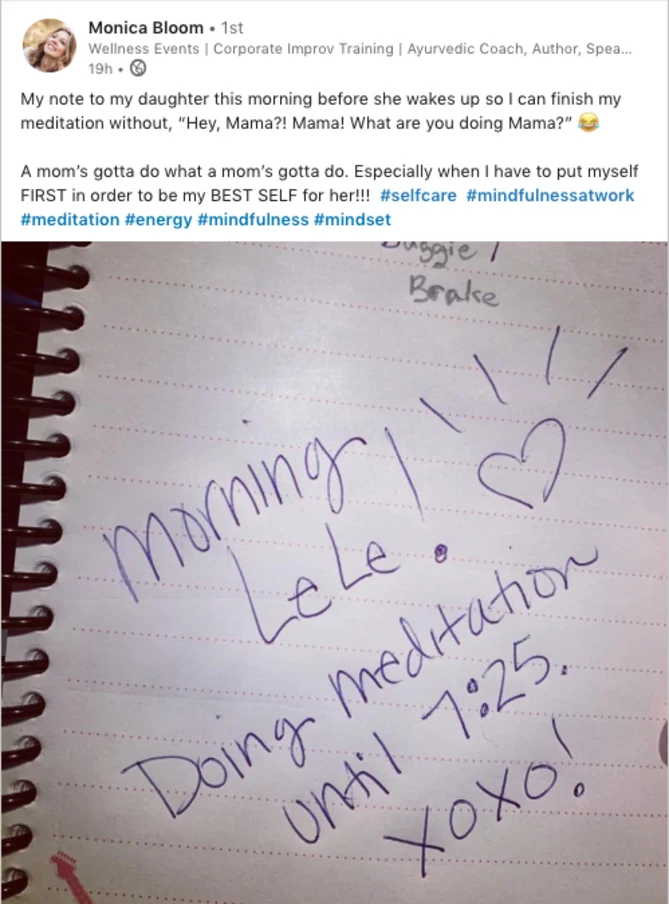 Monica Bloom • 1st
Wellness Events | Corporate Improv Training | Ayurvedic Coach, Author, Spea...
19h •
My note to my daughter this morning before she wakes up so I can finish my
meditation without, “Hey, Mama?! Mama! What are you doing Mama?” 😂
A mom’s gotta do what a mom’s gotta do. Especially when I have to put myself
FIRST in order to be my BEST SELF for her!!! #selfcare #mindfulnessatwork
#meditation #energy #mindfulness #mindset
Brake
Morning
LeLe!
Doing meditation
until 7:25.
XOXO!